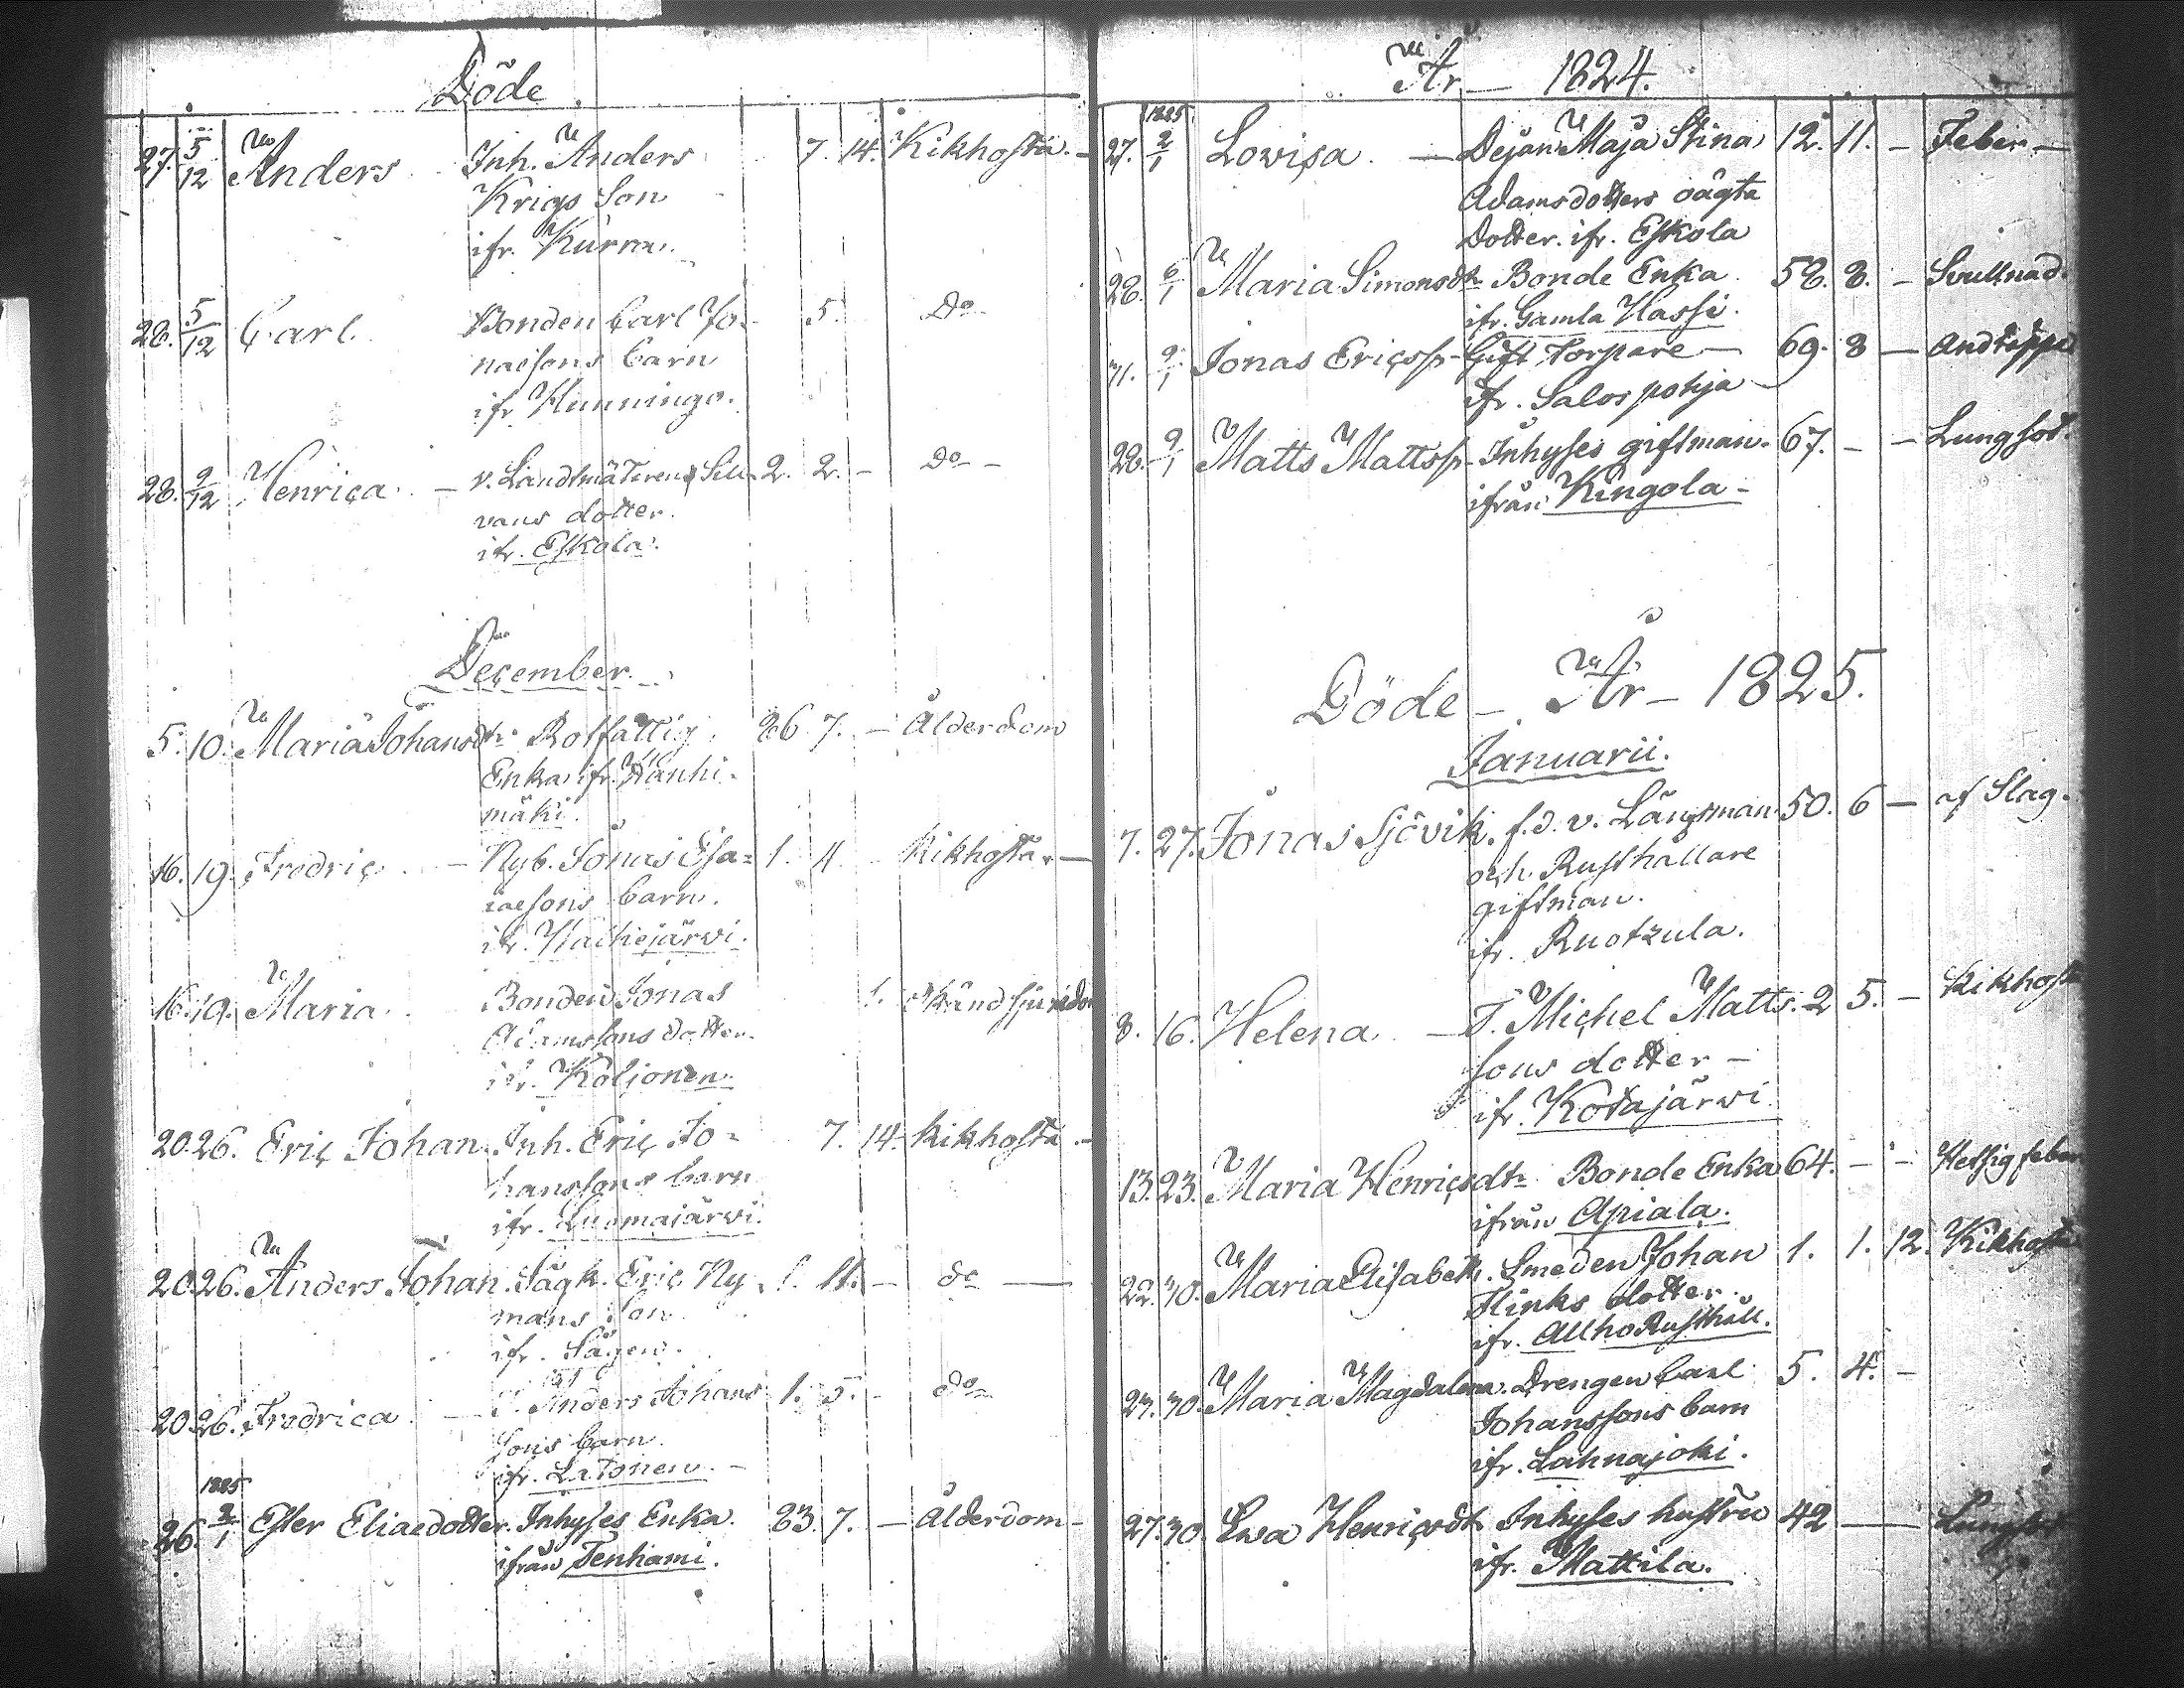 Döde
27. 5/12 Anders Inh. Anders 7. 14. Kikhosta. -
Krigs Son
ifr. Kurra.
28. 5/12 Carl. Bonden Carl Jo- 5. Do
naesons barn
ifr. Hunningo.
28. 9/12 Henrica. - v. Landtmäteren Sil- 2. 2. - Do -
vans dotter.
ifr. Eskola.
December.
5. 10. Maria Johansdtr. Rotfattig 86 7. - Ålderdom
Enka ifr. Kanhi-
mäki.
16. 19. Fredric - Nyb. Jonas Esa= 1. 4. Kikhosta. -
iaesons barn.
ifr. Hachejärvi.
16. 19. Maria. Bonden Jonas 1.
Adamssons dotter.
ifr. Koljonen.
20. 26. Eric Johan. Inh. Eric Jo= 7. 14. Kikhosta -
hanssons barn
ifr. Luomajärvi.
20. 26. Anders Johan. Sågk. Eric Ny- 1. 11. - do -
mans son
ifr. Sågen.
20. 26. Fredrica. - T. Anders Johans 1. 5. - do
sons barn.
ifr. Latonen. -
1825
26. 2/1 Ester Eliaedotter. Inhyses Enka. 83. 7. - Ålderdom -
ifrån Tenhami.
År - 1824.
1825
27. 2/1 Lovisa. - Dejan Maja Stina 12. 11. - Feber -
Adamsdotters oägta
Dotter. ifr. Eskola
28. 6/1 Maria Simonsdtr. Bonde Enka 58. 8. - Svullnad.
ifr. Gamla Hassi.
31. 9/1 Jonas Ericss. - Gift Torpare - 69. 8 - Andtäppa
ifr. Salospohja
28. 9/1 Matts Mattss. - Inhyses giftman. 67. - - Lungsot.
ifrån Kingola -
Döde - År - 1825.
Januarii.
7. 27. Jonas Sjövik. f.d. v. Länsman 50. 6 - af Slag.
och Rusthållare
giftman.
ifr. Ruotzula.
8. 16. Helena. - T. Michel Matts. 2 5. - Kikhosta
sons dotter -
ifr. Kotajärvi.
13. 23. Maria Henricsdtr. Bonde Enka 64. - - Hetsig feber
ifrån Apiala.
22. 30. Maria Elisabeth. Smeden Johan 1. 1. 12. Kikhosta
Flinks dotter.
ifr. Allho Rusthåll.
23. 30. Maria Magdalena. Drengen Carl 5. 4. -
Johanssons barn
ifr. Lahnajoki.
27. 30. Ewa Henricsdtr. Inhyses hustru 42 - - Lungsot
ifr. Mattila.